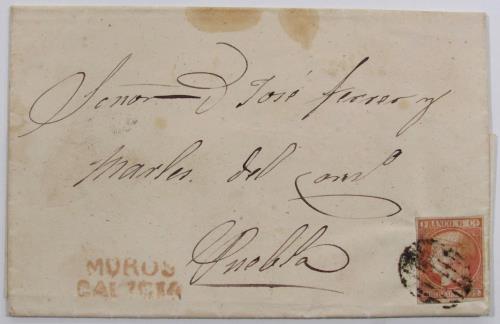 Señor D José Ferrer y
Marles. del com.o
Puebla
MUROS
GALICIA
FRANCO. 6 Cs